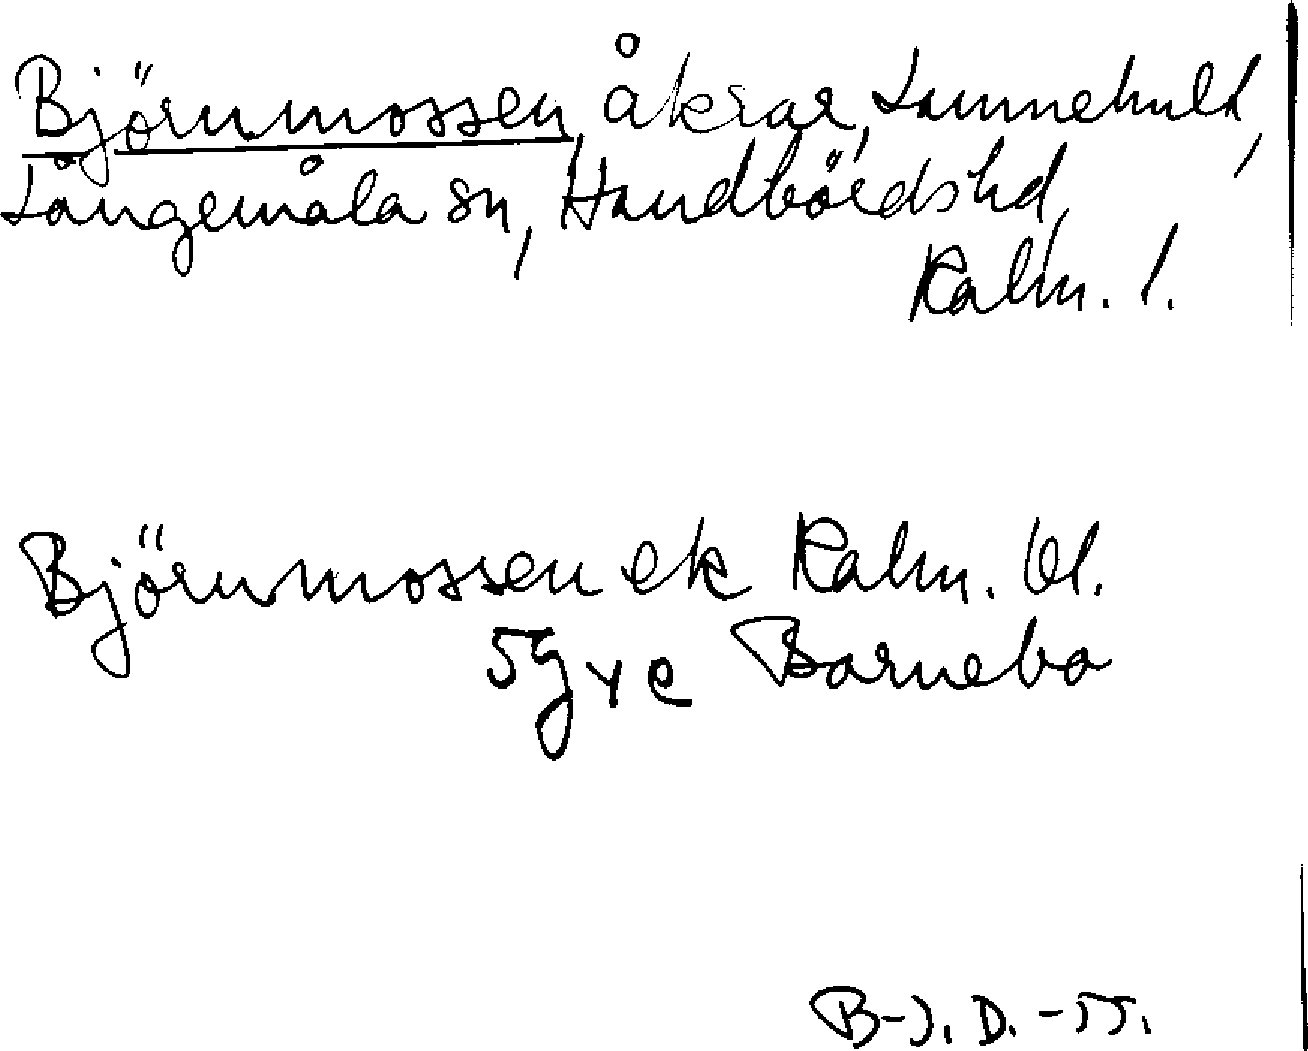 Björnmossen, åkrar, Lannehult,
Långemåla sn, Handbörds hd,
Kalm. l.
Björnmossen ek Kalm. bl.
5g y e Barnebo
B-J. D. -55.